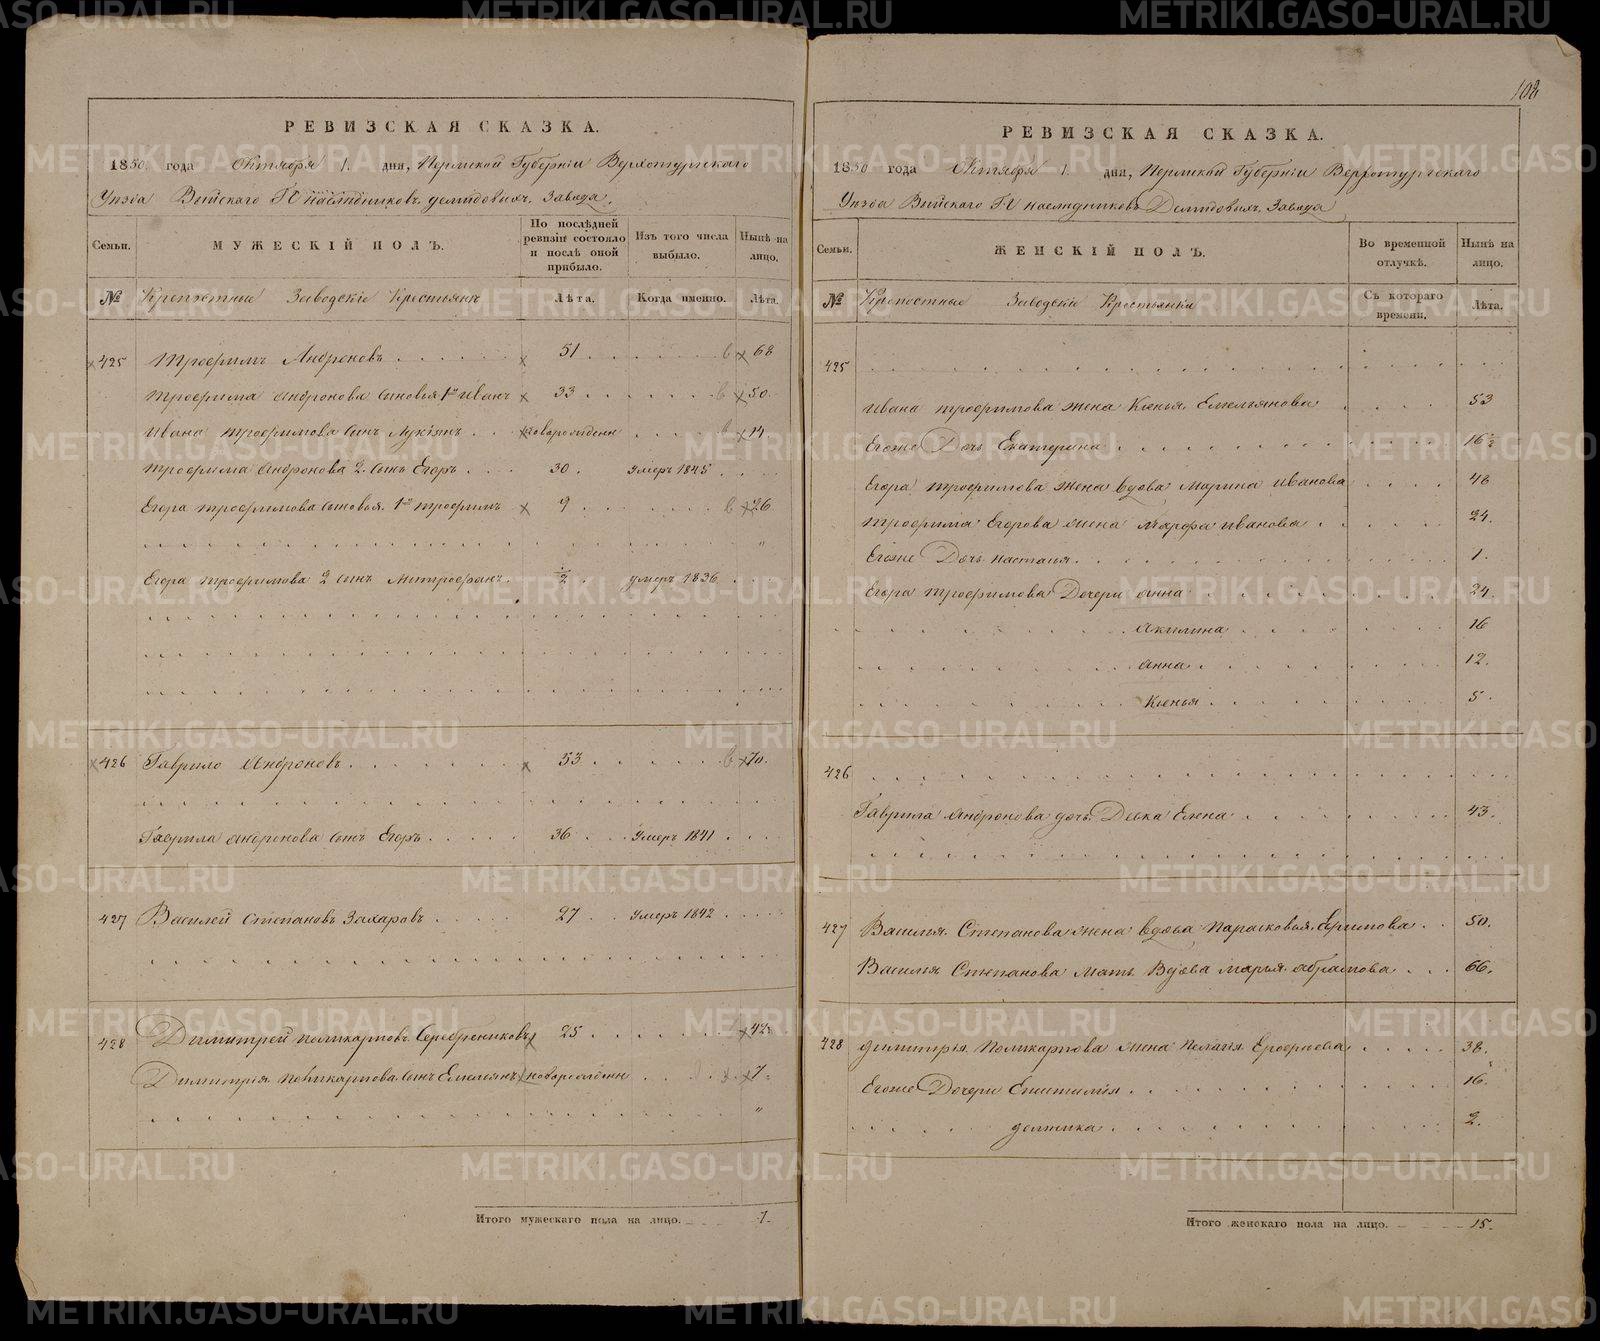 РЕВИЗСКАЯ СКАЗКА.
1850 года Октября 1. дня, Пермской Губерніи Верхотурскаго
Уѣзда Выйскаго Г.г. наслѣдниковъ демидовыхъ. Завода.
Семьи.
МУЖЕСКІЙ ПОЛЪ.
По послѣдней ревизіи состояло и послѣ оной прибыло.
Изъ того числа выбыло.
Нынѣ на лицо.
№ Крепостные Заводскіе Крестьянѣ
Лѣта.
Когда именно.
Лѣта.
425 Трофимъ Андроновъ 51 68
Трофима Андронова сыновья 1й Иванъ 33 50.
Ивана Трофимова сынъ Лукіянъ новорожденн 14
Трофима Андронова 2. сынъ Егоръ 30. Умеръ 1845
Егора Трофимова сыновья. 1й Трофимъ 9 26
Егора Трофимова 2 сынъ Митрофанъ. ½ умеръ 1836
426 Гаврило Андроновъ 53 70.
Гаврила Андронова сынъ Егоръ 36 Умеръ 1841
427 Василей Степановъ Захаровъ 27 Умеръ 1842
428 Димитрей Поликарповъ Серебрениковъ 25 42
Димитрія Поликарпова сынъ Емельянъ новорожденн 7
Итого мужескаго пола на лицо. 7.
108
РЕВИЗСКАЯ СКАЗКА.
1850 года Октября 1. дня, Пермской Губерніи Верхотурскаго
Уѣзда Выйскаго Г.г. наслѣдниковъ Демидовыхъ. Завода
Семьи.
ЖЕНСКІЙ ПОЛЪ.
Во временной отлучкѣ.
Нынѣ на лицо.
№ Крепостные Заводскіе Крестьянки
Съ котораго времени.
Лѣта.
425
Ивана Трофимова жена Ксенья. Емельянова 53
Егоже Дочь Екатерина 16½
Егора Трофимова жена вдова Марина Иванова 48
Трофима Егорова жена Марфа Иванова 24.
Егоже Дочь Настасья 1.
Егора Трофимова Дочери Анна 24.
Акилина 16
Анна 12.
Ксенья 5.
426
Гаврила Андронова дочь Девка Елена 43.
427 Василья. Степанова жена вдова Парасковья. Ефимова 50.
Василья Степанова мать Вдова Марья Абрамова 66.
428 Димитрія. Поликарпова жена Пелагія. Ерофеева 38.
Егоже Дочери Епистимія 16.
2.
Итого женскаго пола на лицо. 15.
METRIKI.GASO-URAL.RU